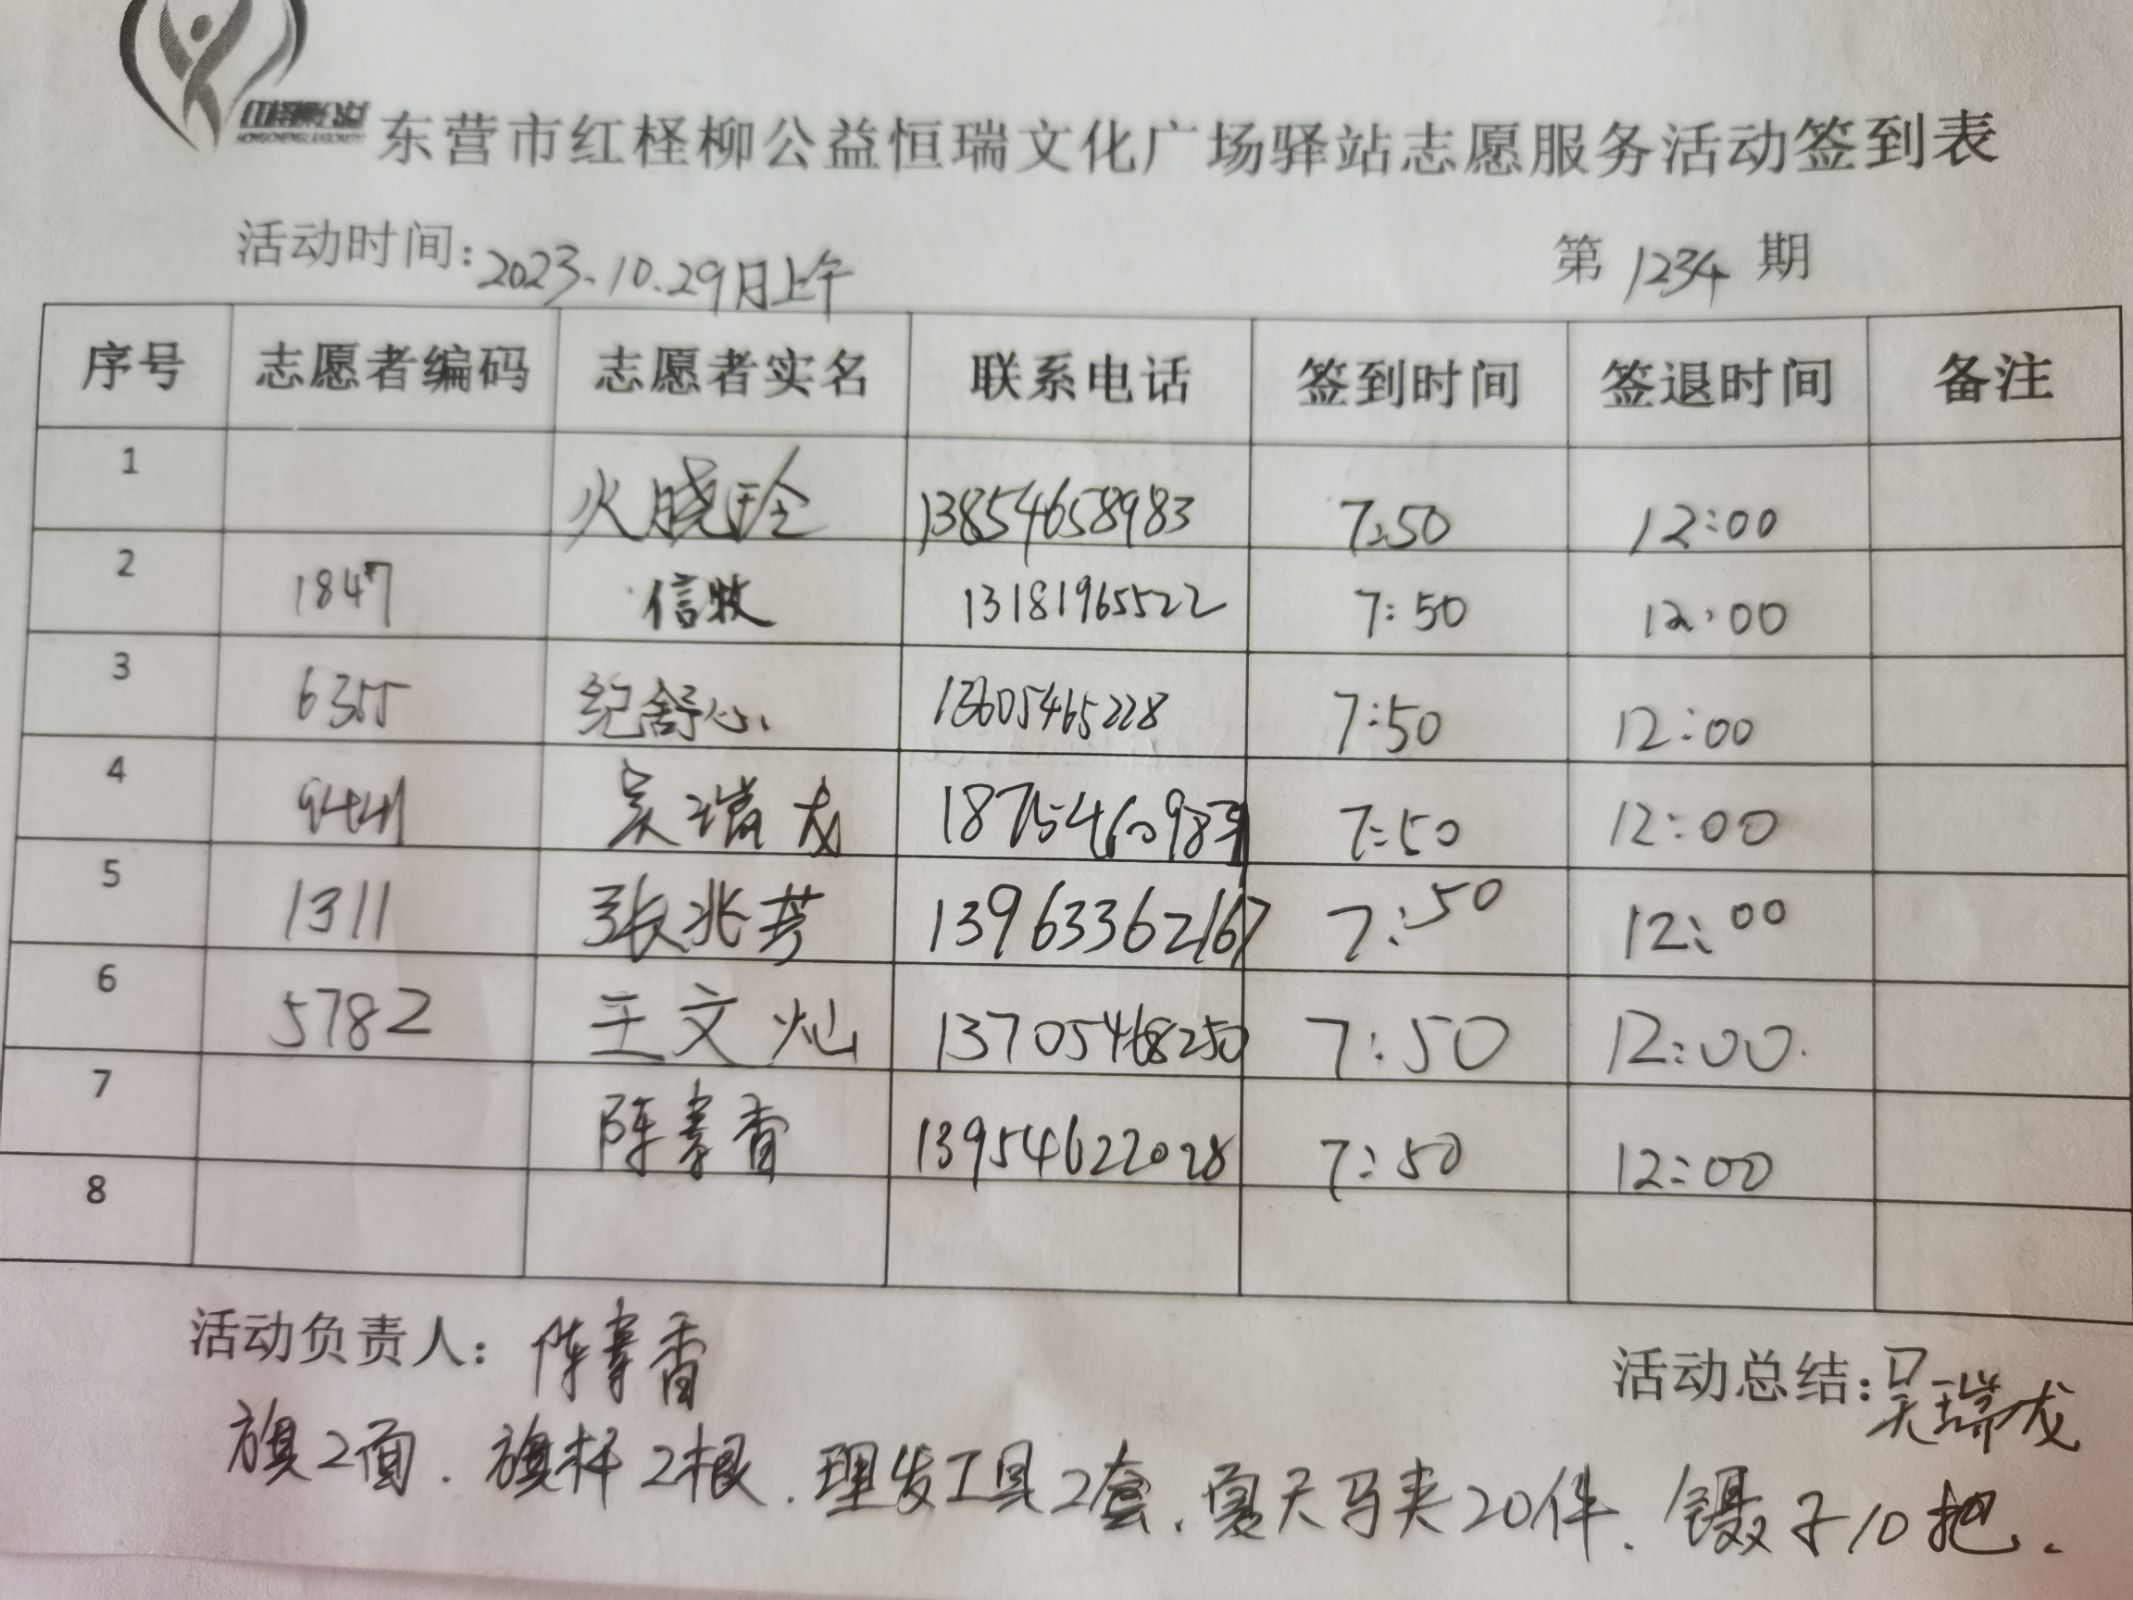 红柽柳公益
东营市红柽柳公益恒瑞文化广场驿站志愿服务活动签到表
活动时间：2023.10.29日上午 第 1234 期
序号 志愿者编码 志愿者实名 联系电话 签到时间 签退时间 备注
1 火晓玲 13854658983 7:50 12:00
2 1847 信牧 13181965522 7:50 12:00
3 6355 纪舒心 13605465228 7:50 12:00
4 9441 吴瑞龙 7:50 12:00
5 1311 张兆芳 13963362167 7:50 12:00
6 5782 王文灿 13705468250 7:50 12:00
7 陈香 13954622028 7:50 12:00
8
活动负责人：陈香 活动总结：吴瑞龙
旗2面．旗杆2根．理发工具2套．夏天马夹20件．镊子10把．